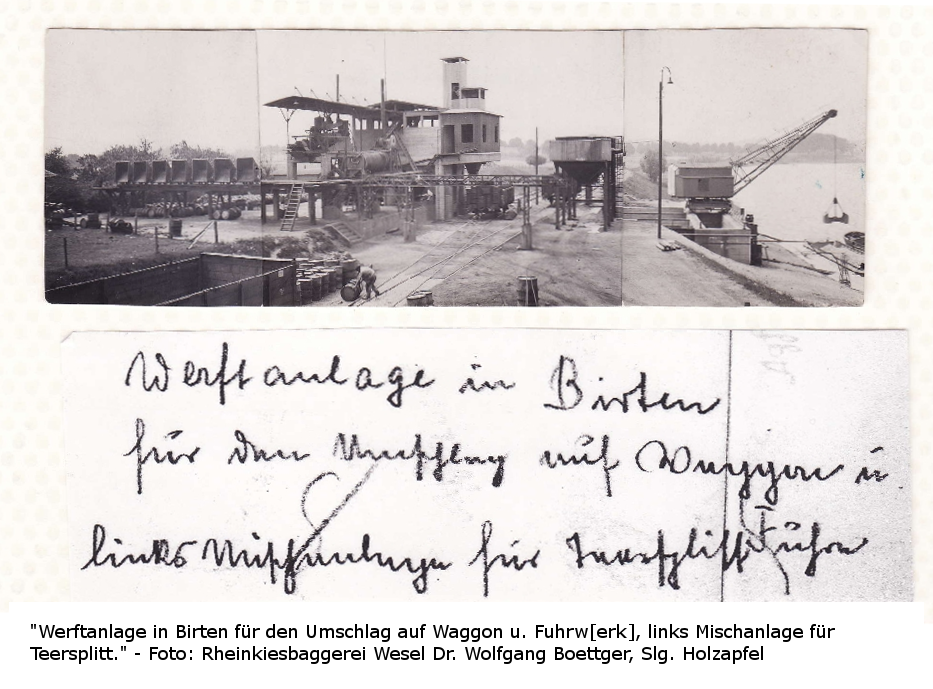 Werftanlage in Birten
für den Umschlag auf Waggon u
Fuhrw
links Mischanlage für Teersplitt
"Werftanlage in Birten für den Umschlag auf Waggon u. Fuhrw[erk], links Mischanlage für
Teersplitt." - Foto: Rheinkiesbaggerei Wesel Dr. Wolfgang Boettger, Slg. Holzapfel